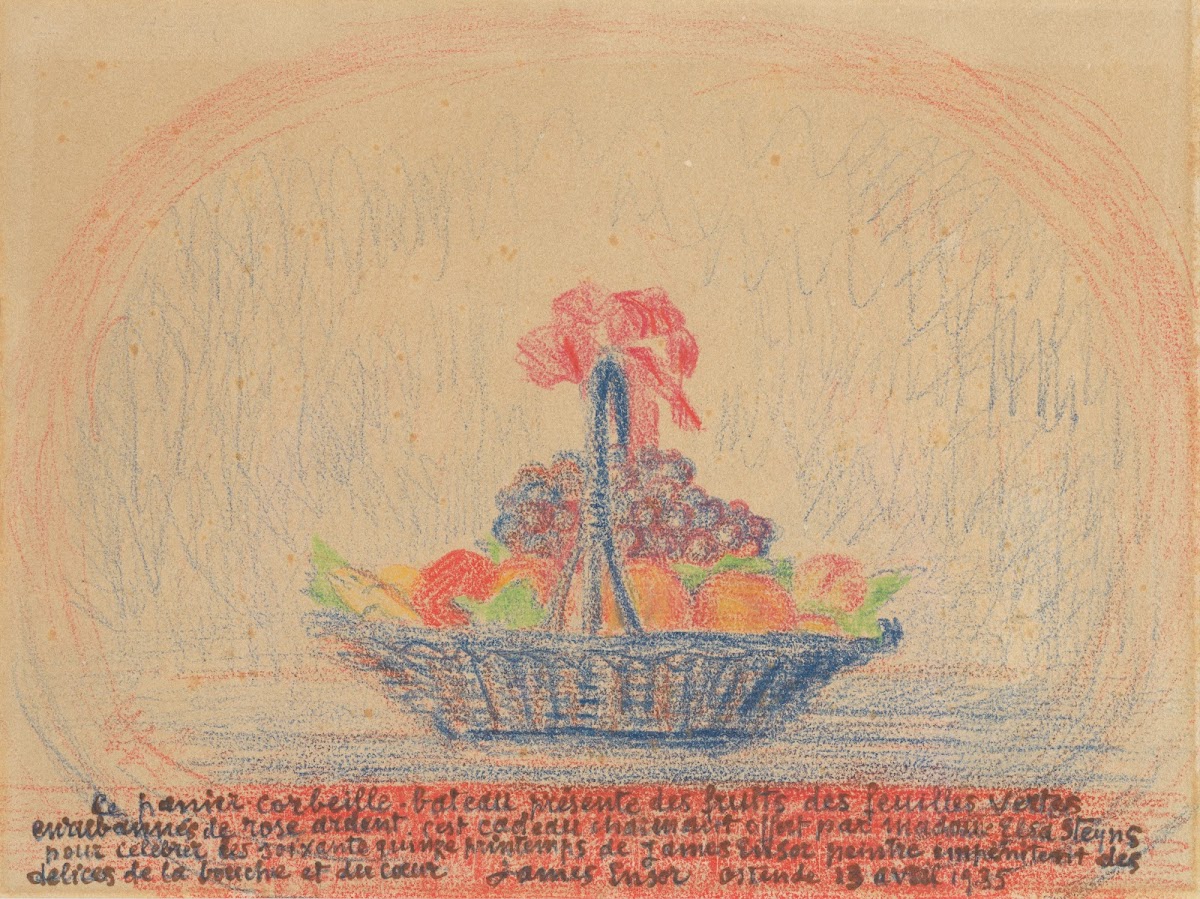 Ce panier corbeille-bateau présente des fruits des feuilles vertes
enrubannés de rose ardent. c'est cadeau charmant offert par madame Elsa Steyns
pour célébrer les soixante quinze printemps de James Ensor peintre impénitent des
délices de la bouche et du cœur James Ensor Ostende 13 avril 1935